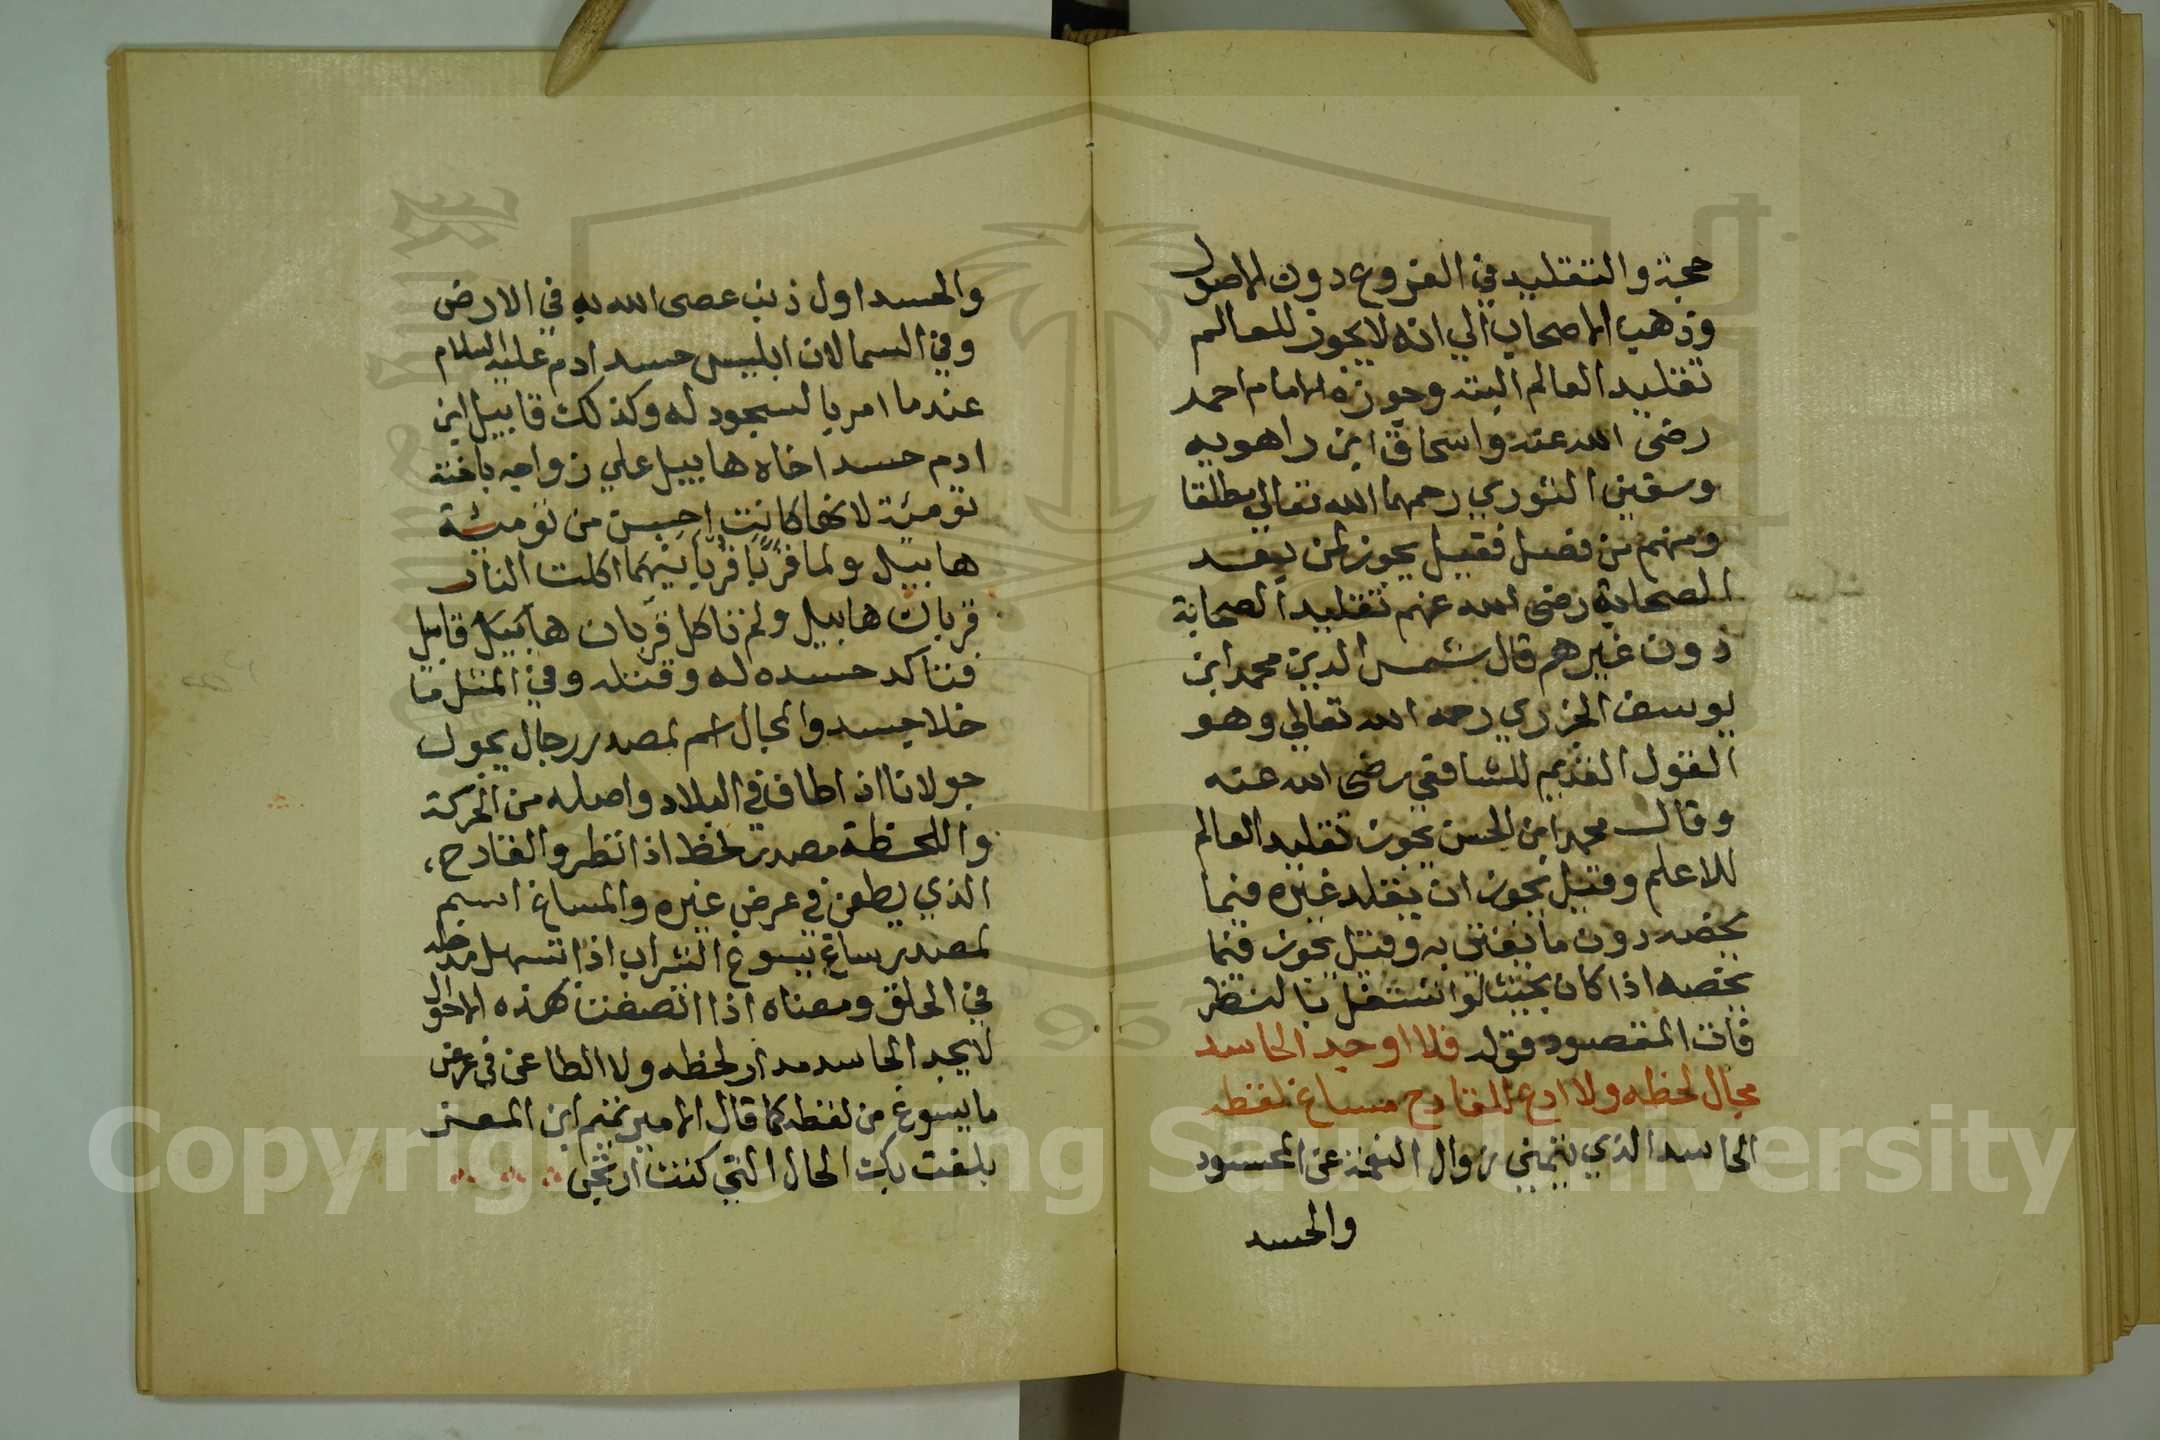 حجة والتقليد في الفروع دون الاصول
وذهب الاصحاب الي انه لا يجوز للعالم
تقليد العالم البتة وجوزه الامام احمد
رضى الله عنه واسحاق ابن راهويه
وسفين الثوري رحمهما الله تعالي مطلقا
ومنهم من فصل فقيل يجوز لمن بعد
الصحابة رضى الله عنهم تقليد الصحابة
دون غيرهم قال شمس الدين محمد ابن
يوسف الجزري رحمه الله تعالي وهو
القول القديم للشافعي رضى الله عنه
وقال محمد ابن الحسن يجوز تقليد العالم
للاعلم وقيل يجوز ان يقلد غيره فيما
يخصه دون ما يفتى به وقيل يجوز فيما
يخصه اذا كان بحيث لو اشتغل بالنظر
فات المقصود قوله فلا اوجد الحاسد
مجال لحظه ولا ادع للقادح مساغ لفظه
الحاسد الذي يتمنى زوال النعمة عن المحسود
والحسد
والحسد اول ذنب عصى الله به في الارض
وفي السما لان ابليس حسد ادم عليه السلام
عندما امر بالسجود له وكذلك قابيل ابن
ادم حسد اخاه هابيل علي زواجه باخته
تومئة لانها كانت احسن من تومئة
هابيل ولما قربا قربانيهما اكلت النار
قربان هابيل ولم تاكل قربان هابيل قابيل
فتاكد حسده له وقتله وفي المثل ما
خلا جسد والمجال اسم لمصدر جال يجول
جولانا اذا طاف في البلاد واصله من الحركة
واللحظة مصدر لحظ اذا نظر والقادح،
الذي يطعن في عرض غيره والمساغ اسم
لمصدر ساغ يسوغ الشراب اذا تسهل مدخله
في الحلق ومعناه اذا اتصفت هذه الاحوال
لا يجد الحاسد مدار لحظه ولا الطاعن في عرض
ما يسوغ من لفظه كما قال الامير تميم ابن المعز
بلغت بك الحال التي كنت ارتجى
Copyright © King Saud University
1957